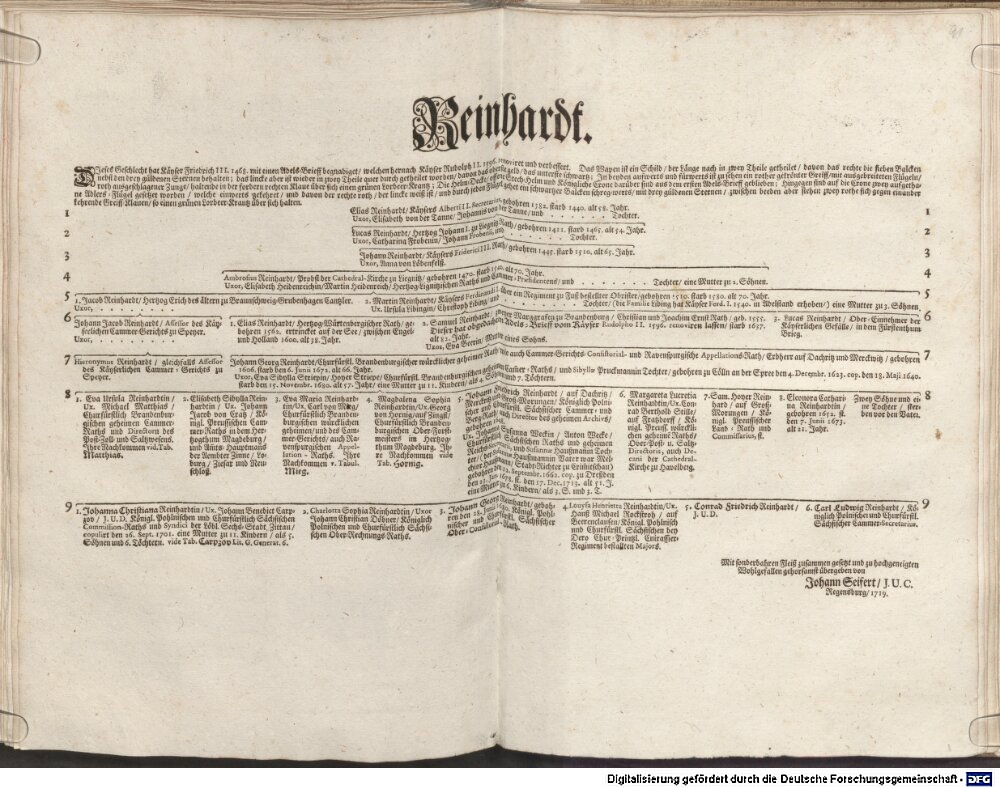 91
Reinhardt.
Dieses Geschlecht hat Käyser Friedrich III. 1468. mit einen Adels-Brieff begnadiget / welchen hernach Käyser Rudolph II. 1596. renoviret und verbessert. Das Wapen ist ein Schild / der Länge nach in zwey Theile getheilet / davon das rechte die sieben Balcken
nebst den drey güldenen Sternen behalten; das lincke aber ist wieder in zwey Theile quer durch getheilet worden / davon das oberste geld / das unterste schwartz; In beyden auffwerts und fürwerts ist zu sehen ein rother gekrönter Greiff / mit ausgebreiteten Flügeln /
roth ausgeschlagener Zunge / haltende in der fordern rechten Klaue über sich einen grünen Lorbeer-Krantz; Die Helm-Decke / offene Stech-Helm und Königliche Crone darüber sind aus den ersten Adels-Brieff geblieben; Hingegen sind auf die Crone zwey aufgethane
Adlers-Flügel gesetzet worden / welche einwerts gekehret / und davon der rechte roth / der lincke weiß ist / und durch jeden Flügel gehet ein schwartzer Balcken schregwerts / mit drey güldenen Sternen / zwischen beyden aber stehen zwey rothe sich gegen einander
kehrende Greiff-Klauen / so einen grünen Lorbeer-Krantz über sich halten.
1 Elias Reinhardt / Käysers Alberti II. Secretarius, gebohren 1382. starb 1440. alt 58. Jahr. 1
Uxor, Elisabeth von der Tanne / Johannis von der Tanne / und . . . . . . Tochter.
2 Lucas Reinhardt / Hertzog Johann I. zu Liegnitz Rath / gebohren 1411. starb 1465. alt 54. Jahr. 2
Uxor, Catharina Frobenin / Johann Frobenii, und . . . . . . Tochter.
3 Johann Reinhardt / Käysers Friderici III. Rath / gebohren 1445. starb 1510. alt 65. Jahr. 3
Uxor, Anna von Löbenfelß.
4 Ambrosius Reinhardt / Probst der Cathedral-Kirche zu Liegnitz / gebohren 1470. starb 1540. alt 70. Jahr. 4
Uxor, Elisabeth Heidenreichin / Martin Heidenreich / Hertzog-Lignitzischen Raths und Cammer-Præsidentens / und . . . . . . Tochter / eine Mutter zu 2. Söhnen.
5 1. Jacob Reinhardt / Hertzog Erich des ältern zu Braunschweig-Grubenhagen Cantzler. 2. Martin Reinhardt / Käysers Ferdinandi I. über ein Regiment zu Fuß bestellter Obrister / gebohren 1510. starb 1580. alt 70. Jahr. 5
Uxor, . . . . . . Ux. Ursula Libingin / Christoph Libing / und . . . . . . Tochter / (die Familie Libing hat Käyser Ferd. I. 1540. in Adelstand erhoben /) eine Mutter zu 3. Söhnen.
6 Johann Jacob Reinhardt / Assessor des Käyserlichen Cammer-Gerichts zu Speyer. 6
1. Elias Reinhardt / Hertzog-Würtenbergischer Rath / gebohren 1562. ertrincket auf der See / zwischen Engel- und Holland 1600. alt 38. Jahr.
2. Samuel Reinhardt / zweyer Marggrafen zu Brandenburg / Christian und Joachim Ernst Rath / geb. 1555. Dieser hat obgedachten Adels-Brieff vom Käyser Rudolpho II. 1596. renoviren lassen / starb 1637. alt 82. Jahr.
Uxor, Eva Gerrin / Mutter eines Sohns.
3. Lucas Reinhardt / Ober-Einnehmer der Käyserlichen Gefälle / in den Fürstenthum Brieg.
7 Hieronymus Reinhardt / gleichfalls Assessor des Käyserlichen Cammer-Gerichts zu Speyer. 7
Johann Georg Reinhardt / Churfürstl. Brandenburgischer würcklicher geheimer Rath / wie auch Cammer-Gerichts-Consistorial- und Ravenspurgische Appellations-Rath / Erbherr auf Dachritz und Merckwitz / gebohren
1606. starb den 6. Junii 1672. alt 66. Jahr.
Uxor, Eva Sibylla Striepin / Hoyer Striepe / Churfürstl. Brandenburgischen geheimen Cammer-Raths / und Sibyllæ Pruckmannin Tochter / gebohren zu Cölln an der Spree den 4. Decembr. 1623. cop. den 18. Maji 1640.
starb den 15. Novembr. 1680. alt 57. Jahr / eine Mutter zu 11. Kindern / als 4. Söhnen und 7. Töchtern.
8 1. Eva Ursula Reinhardtin / Ux. Michael Matthias / Churfürstlich Brandenburgischen geheimen Cammer-Raths und Directoris des Post-Zoll- und Saltzwesens. Ihre Nachkommen vid. Tab. Matthias. 8
2. Elisabeth Sibylla Reinhardtin / Ux. Johann Jacob von Krah / Königl. Preussischen Cammer-Raths in dem Hertzogthum Magdeburg / und Amts-Hauptmanns der Aemdter Zinne / Loburg / Ziesar und Neuschloß.
3. Eva Maria Reinhardtin / Ux. Carl von Mieg / Churfürstlich Brandenburgischen würcklichen geheimen / und des Cammer-Gerichts / auch Ravenspurgischen Appellation-Raths. Ihre Nachkommen v. Tabul. Mieg.
4. Magdalena Sophia Reinhardtin / Ux. Georg von Hornig / auf Zingst / Churfürstlich Brandenburgischen Ober-Forstmeisters im Hertzogthum Magdeburg. Ihre Nachkommen vide Tab. Hornig.
5. Johann Friedrich Reinhardt / auf Dachritz / Groß-Morungen / Königlich Polnischer und Churfürstl. Sächsischer Cammer- und Berg-Rath / auch Director des geheimen Archivs /
Ux. Johanna Susanna Weckin / Anton Wecke / Sächsischen Raths und geheimen / und Susannæ Haußmannin Tochter / Haußmannin Vater war / Stadt-Richter zu
22. Septembr. 1662. cop. zu Dresden
den 21. Jun. 1673. st. den 17. Dec. 1713. alt 51. J. eine Mutter zu 6. Kindern / als 3. S. und 3. T.
6. Margareta Lucretia Reinhardtin / Ux. Conrad Berthold Stisse / auf Frahdorff / Königl. Preuß. würcklichen geheime Raths / Ober-Post- u. Saltz-Directoris, auch Decani der Cathedral-Kirche zu Havelberg.
7. Sam. Hoyer Reinhard / auf Groß-Morungen / Königl. Preussischer Land-Rath und Commissarius, st.
8. Eleonora Catharina Reinhardtin / gebohren 1652. st. den 7. Junii 1673. alt 21. Jahr.
Zwey Söhne und eine Tochter / sterben vor den Vater.
9 1. Johanna Christiana Reinhardtin / Ux. Johann Benedict Carpzov / J. U. D. Königl. Pohlnischen und Churfürstlich Sächsischen Commission-Raths und Syndici der Löbl. Sechs-Stadt Zittau / copulirt den 26. Sept. 1701. eine Mutter zu 11. Kindern / als 5. Söhnen und 6. Töchtern. vide Tab. Carpzov Lit. G. Generat. 6. 9
2. Charlotta Sophia Reinhardtin / Uxor Johann Christian Döbner / Königlich Polnischen und Churfürstlich Sächsischen Ober-Rechnungs Raths.
3. Johann Georg Reinhardt / gebohren den 28. Königl. Pohlnischer und Churfürstl. Sächsischer Rath.
4. Louysa Henrietta Reinhardtin / Ux. Hanß Michael Rockstroh / auf Beermclausen / Königl. Pohlnisch und Churfürstl. Sächsischen bey Dero Chur-Printzl. Cuirassier-Regiment bestallten Majors.
5. Conrad Friedrich Reinhardt / J. U. D.
6. Carl Ludwig Reinhardt / Königlich Polnischer und Churfürstl. Sächsischer Cammer-Secretarius.
Mit sonderbahren Fleiß zusammen gesetzt und zu hochgeneigten
Wohlgefallen gehorsamst übergeben von
Johann Seifert / J. U. C.
Regensburg / 1719.
Digitalisierung gefördert durch die Deutsche Forschungsgemeinschaft - DFG